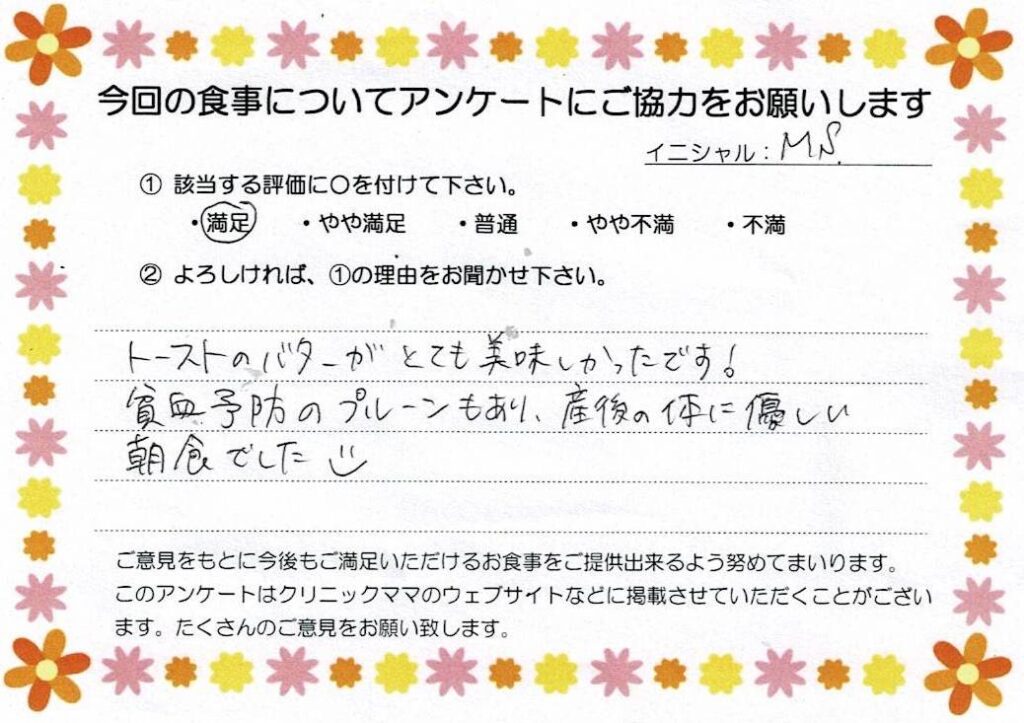 今回の食事についてアンケートにご協力をお願いします
イニシャル：M.S.
① 該当する評価に〇を付けて下さい。
・満足 ・やや満足 ・普通 ・やや不満 ・不満
② よろしければ、①の理由をお聞かせ下さい。
トーストのバターがとても美味しかったです！
貧血予防のプルーンもあり、産後の体に優しい
朝食でした
ご意見をもとに今後もご満足いただけるお食事をご提供出来るよう努めてまいります。
このアンケートはクリニックママのウェブサイトなどに掲載させていただくことがござい
ます。たくさんのご意見をお願い致します。